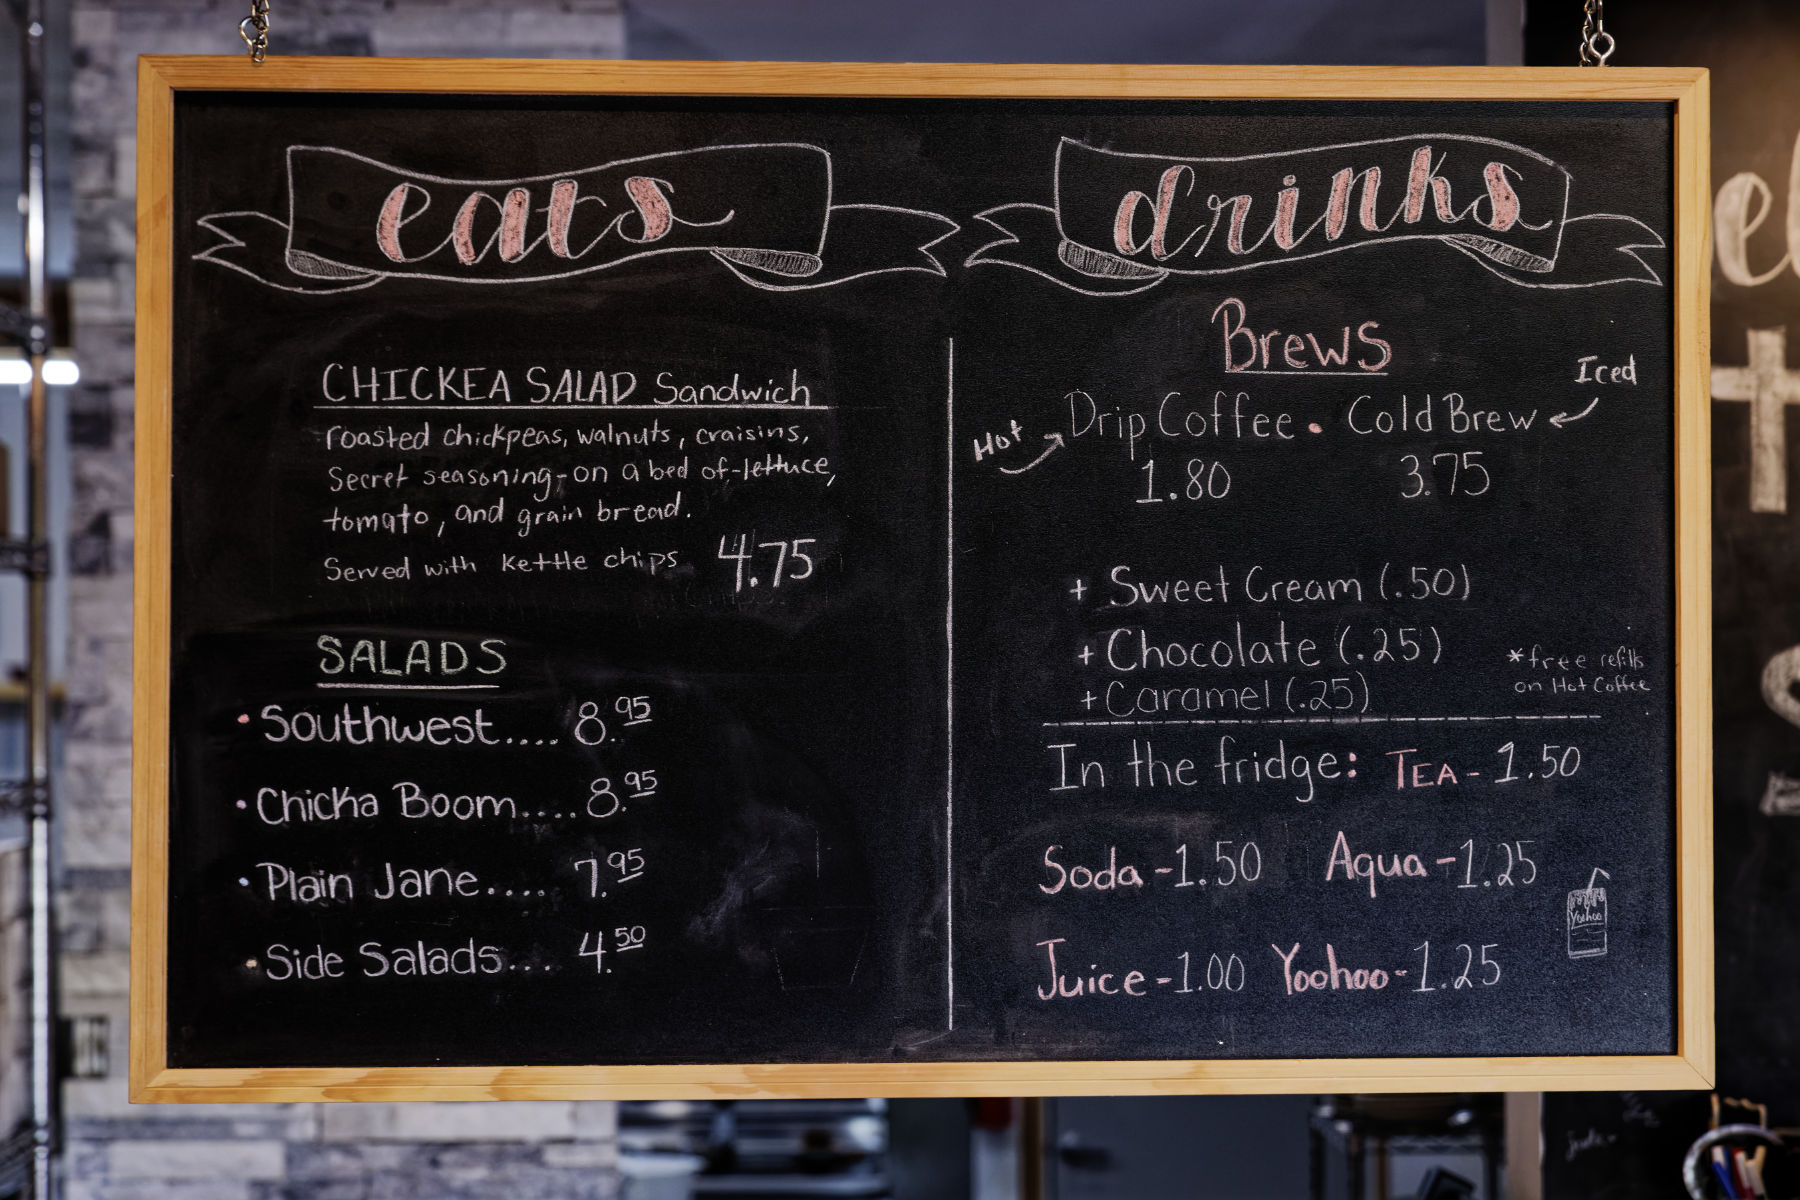 eats
CHICKEA SALAD Sandwich
roasted chickpeas, walnuts, craisins,
Secret seasoning-on a bed of-lettuce,
tomato, and grain bread.
Served with kettle chips 4.75
SALADS
• Southwest.... 8.95
• Chicka Boom.... 8.95
• Plain Jane.... 7.95
• Side Salads... 4.50
drinks
Brews
Iced
Hot Drip Coffee • Cold Brew
1.80 3.75
+ Sweet Cream (.50)
+ Chocolate (.25)
+ Caramel (.25)
*free refills
on Hot Coffee
In the fridge: TEA - 1.50
Soda - 1.50 Aqua - 1.25
Yoohoo
Juice - 1.00 Yoohoo - 1.25